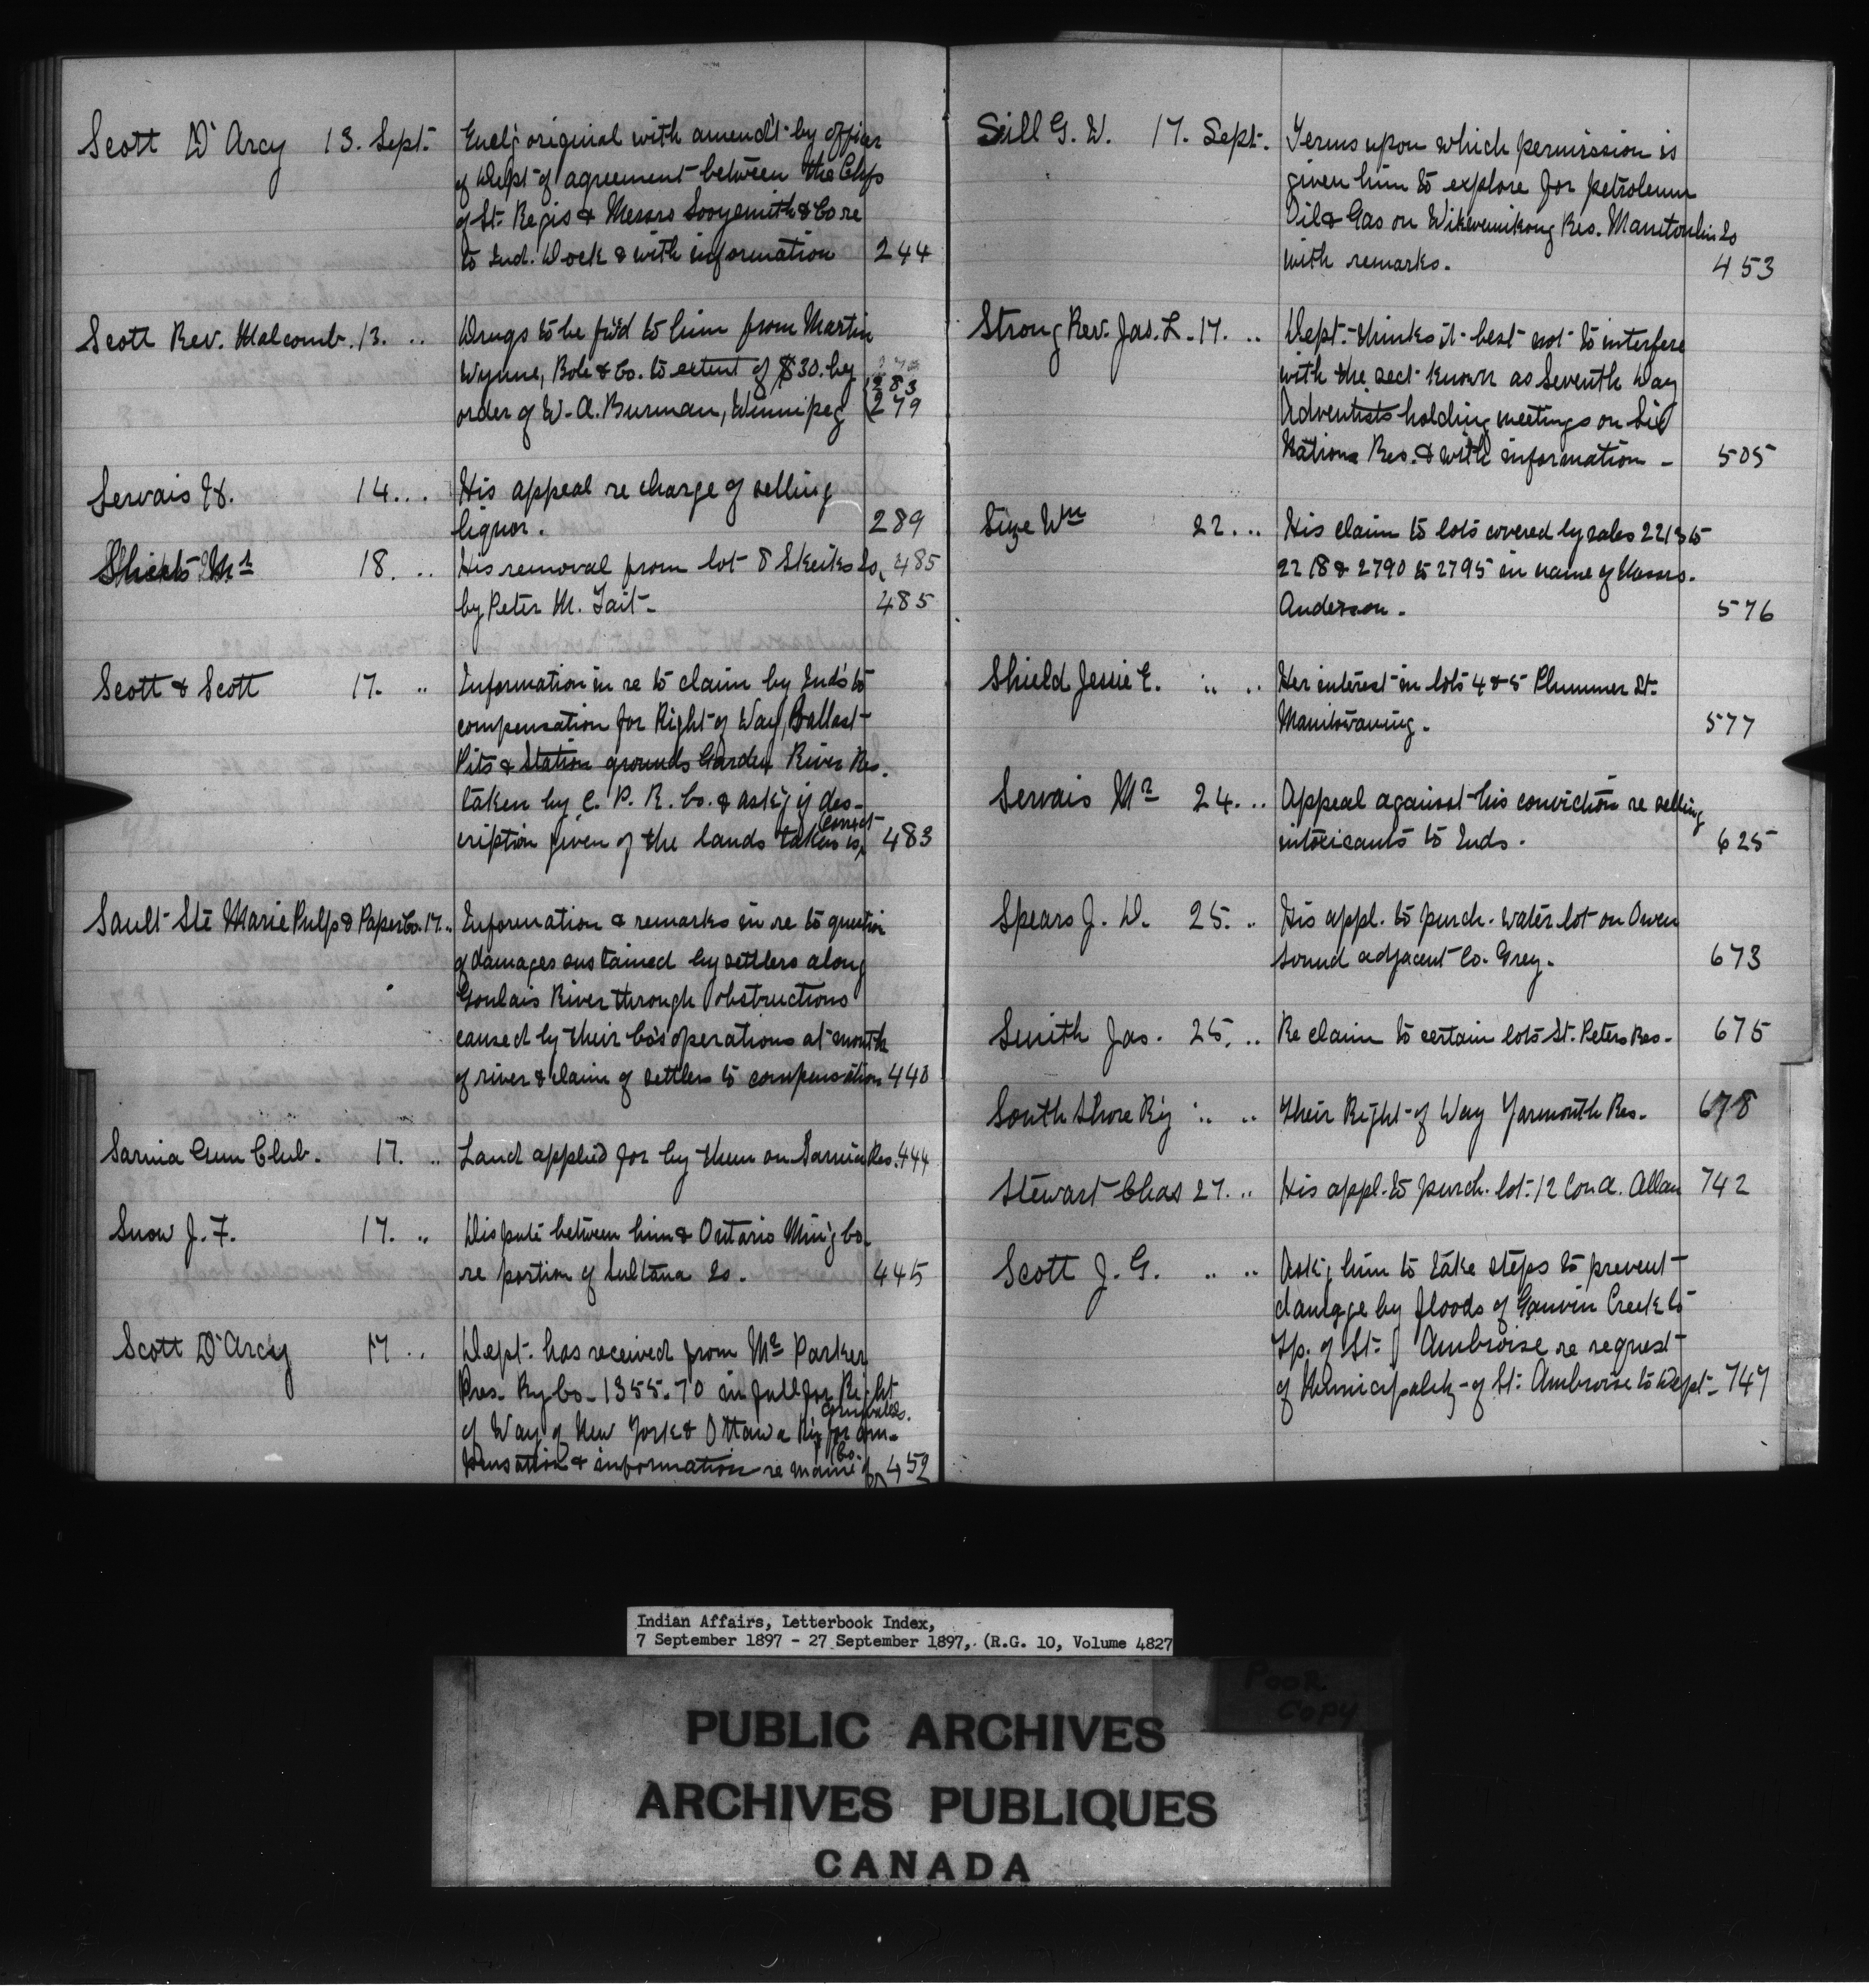 Scott D'Arcy 13. Sept. Encl'g original with amend't by officer
of Dept of agreement between the Chfs
of St. Regis & Messrs Sooysmith & Co re
to Ind. Dock & with information 244
Scott Rev. Malcomb. 13. .. Drugs to be fw'd to him from Martin
Wynne, Bole & Co. to extent of $30. by 283
order of W. A. Burman, Winnipeg 279
Servais H. 14. .. His appeal re charge of selling
liquor. 289
Mr 18. .. His removal from lot 8 Is, 485
by Peter M. Tait. 485
Scott & Scott 17. .. Information in re to claim by Inds to
compensation for Right of Way, Ballast
Pits & Station grounds Garden River Res.
taken by C. P. R. Co. & ask'g if des-
cription given of the lands taken is correct 483
Sault Ste Marie Pulp & Paper Co. 17. .. Information & remarks in re to question
of damages sustained by settlers along
Goulais River through obstructions
caused by their Co's operations at mouth
of river & claim of settlers to compensation 440
Sarnia Gun Club. 17. .. Land applied for by them on Sarnia Res. 444
Snow J. F. 17. .. Dispute between him & Ontario Min'g Co.
re portion of Sultana Is. 445
Scott D'Arcy 17 .. Dept. has received from Mr Parker
Pres. Ry Co. 1355.70 in full for Right
of Way of New York & Ottawa Ry for Cornwall Is. com-
pensation & information re name of Co. 452
Sill G. W. 17. Sept. Terms upon which permission is
given him to explore for petroleum
Oil & Gas on Wikwemikong Res. Manitoulin Is
with remarks. 453
Strong Rev. Jas. L. 17. .. Dept. thinks it best not to interfere
with the sect known as Seventh Day
Adventists holding meetings on Six
Nations Res. & with information - 505
Size Wm 22. .. His claim to lots covered by sales 2213 to
2218 & 2790 to 2795 in name of Messrs.
Anderson. 576
Shield Jessie E. .. .. Her interest in lots 4 & 5 Plummer St.
Manitowaning. 577
Servais Mr 24. .. Appeal against his conviction re selling
intoxicants to Inds. 625
Spears J. D. 25. .. His appl. to purch. water lot on Owen
Sound adjacent Co. Grey. 673
Smith Jas. 25. .. Re claim to certain lots St. Peters Res. 675
South Shore R'y .. .. Their Right of Way Yarmouth Res. 678
Stewart Chas 27. .. His appl. to purch. lot. 12 Con a. Allan 742
Scott J. G. .. .. Ask'g him to take steps to prevent
damage by floods of Creek to
Tp. of St. Ambroise re request
of Municipality of St. Ambroise to Dept. 747
Indian Affairs, Letterbook Index,
7 September 1897 - 27 September 1897, (R.G. 10, Volume 4827
POOR
COPY
PUBLIC ARCHIVES
ARCHIVES PUBLIQUES
CANADA